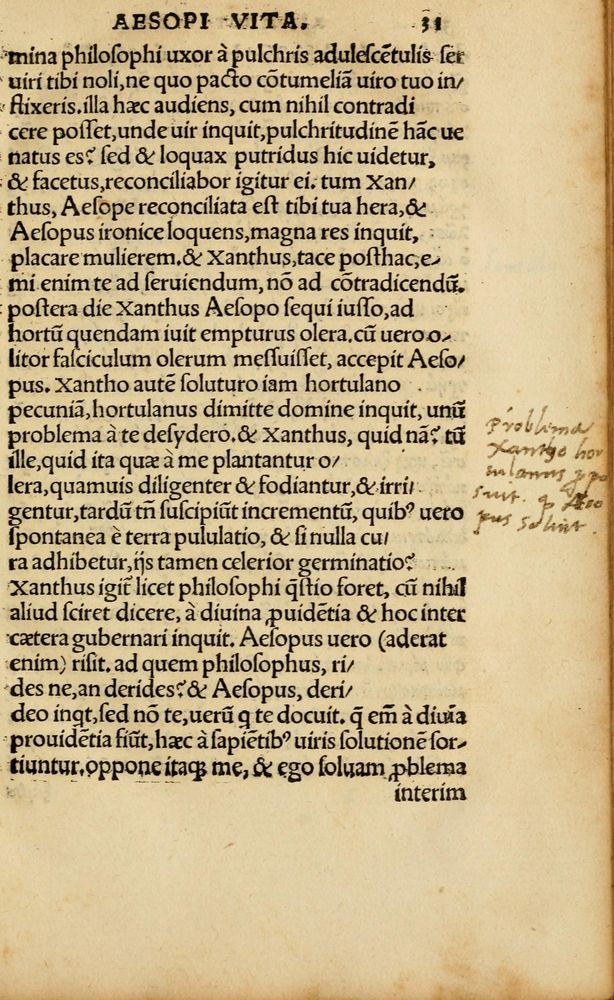 AESOPI VITA. 31
mina philosophi uxor à pulchris adulescẽtulis ser
uiri tibi noli, ne quo pacto cõtumeliã uiro tuo in/
flixeris. illa hæc audiens, cum nihil contradi
cere posset, unde uir inquit, pulchritudinẽ hãc ue
natus es? sed & loquax putridus hic uidetur,
& facetus, reconciliabor igitur ei. tum Xan/
thus, Aesope reconciliata est tibi tua hera, &
Aesopus ironice loquens, magna res inquit,
placare mulierem. & Xanthus, tace posthac, e-
mi enim te ad seruiendum, nõ ad cõtradicendũ.
postera die Xanthus Aesopo sequi iusso, ad
hortũ quendam iuit empturus olera. cũ uero o-
litor fasciculum olerum messuisset, accepit Aeso/
pus. Xantho autẽ soluturo iam hortulano
pecuniã, hortulanus dimitte domine inquit, unũ
problema à te desydero. & Xanthus, quid nã? tũ
ille, quid ita quæ à me plantantur o/
lera, quamuis diligenter & fodiantur, & irri/
gentur, tardũ tñ suscipiũt incrementũ, quibꝰ uero
spontanea è terra pululatio, & si nulla cu/
ra adhibetur, ijs tamen celerior germinatio?
Xanthus igit̃ licet philosophi q̃stio foret, cũ nihil
aliud sciret dicere, à diuina ꝓuidẽtia & hoc inter
cætera gubernari inquit. Aesopus uero (aderat
enim) risit. ad quem philosophus, ri/
des ne, an derides? & Aesopus, deri/
deo inqt, sed nõ te, uerũ q te docuit. q̃ em̃ à diuĩa
prouidẽtia fiũt, hæc à sapiẽtibꝰ uiris solutionẽ sor-
tiuntur. oppone itaqꝫ me, & ego soluam ꝓblema
interim
Problema
Xantho hor
tulanus ꝓpo
suit. q Aeso
pus soluit.